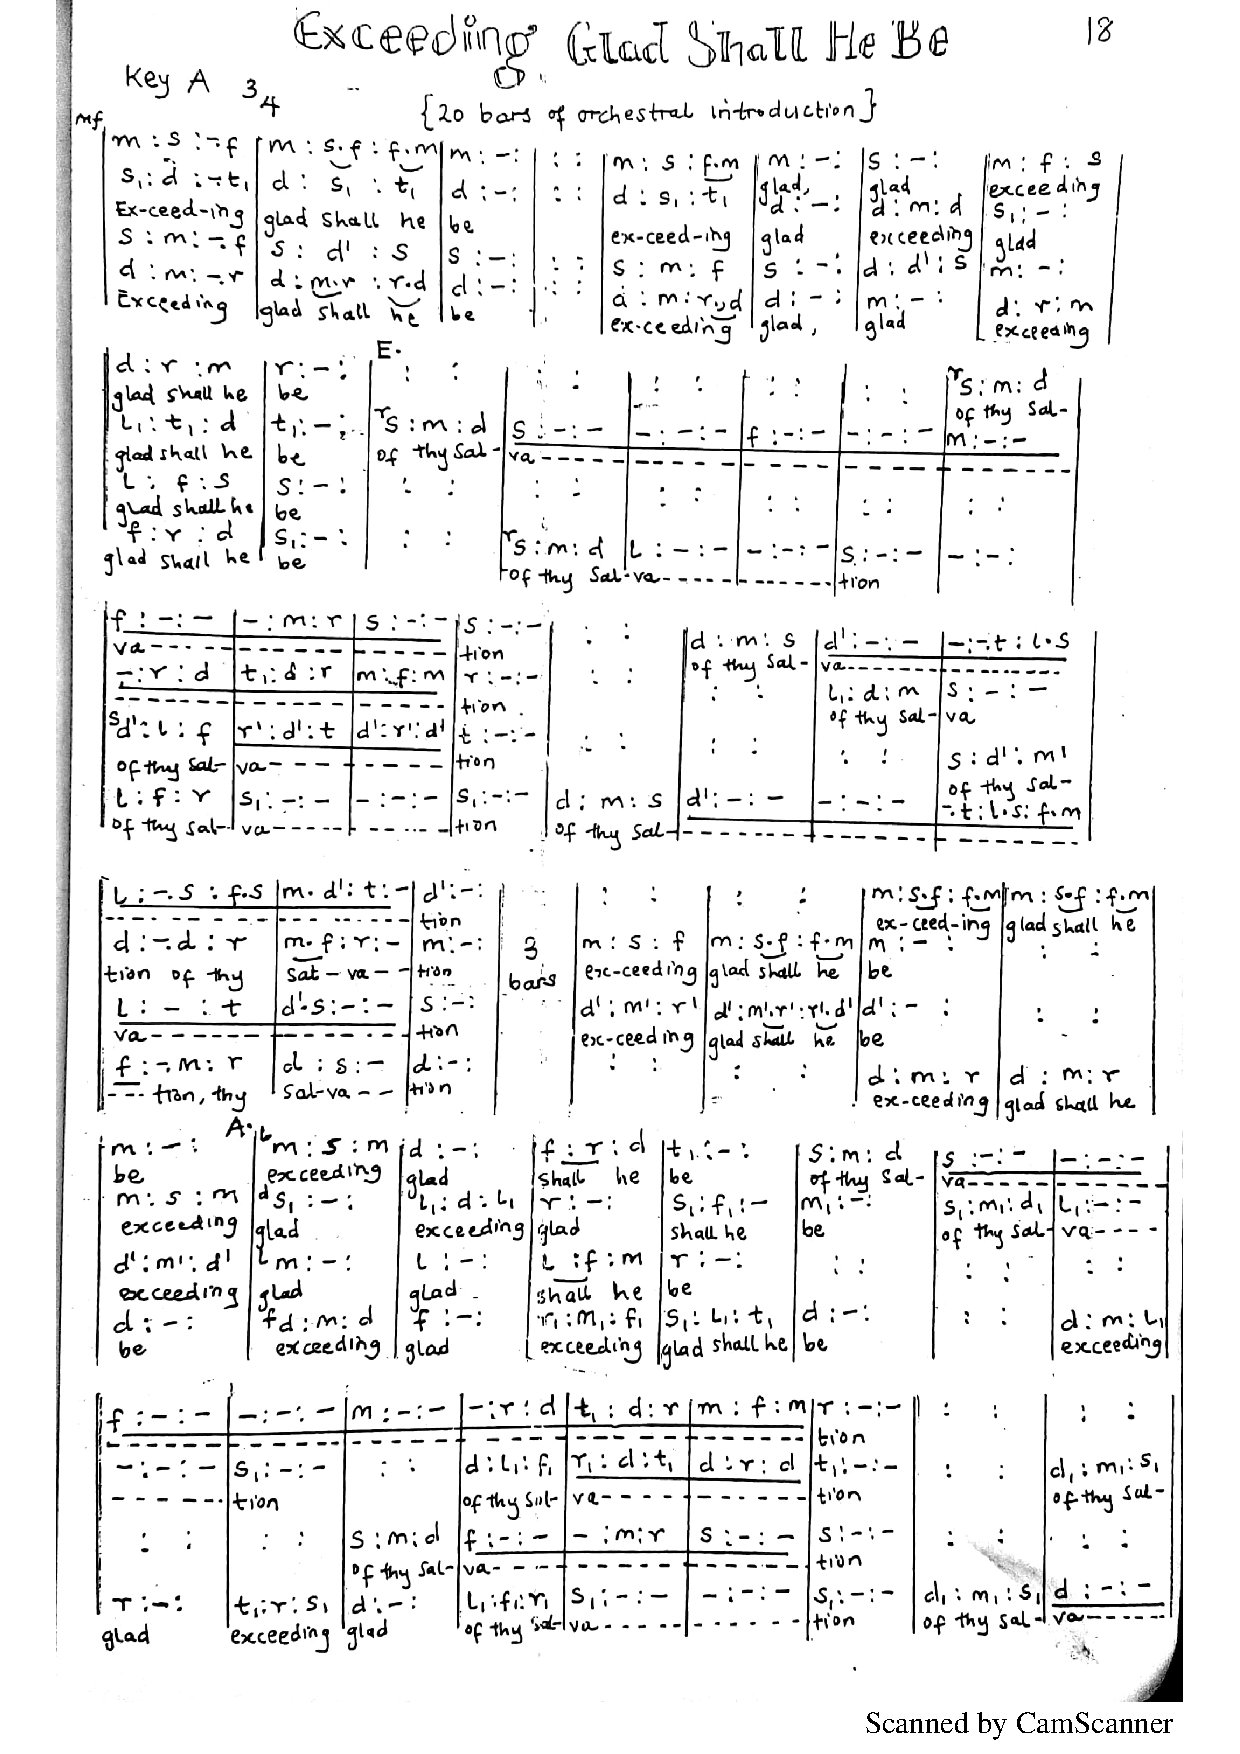 Exceeding Glad Shall He Be
18
Key A 3 4
{20 bars of orchestral introduction}
mf
m : s : -.f | m : s.f : f.m | m : - : | : : | m : s : f.m | m : - : | s : - : | m : f : s
glad, glad exceeding
s₁ : d : -.t₁ | d : s₁ : t₁ | d : - : | : : | d : s₁ : t₁ | d : - : | d : m : d | s₁ : - :
Ex-ceed-ing glad shall he be ex-ceed-ing glad exceeding glad
s : m : -.f | s : d' : s | s : - : | : : | s : m : f | s : - : | d : d' : s | m : - :
d : m : -.r | d : m.r : r.d | d : - : | : : | d : m : r.d | d : - : | m : - : | d : r : m
Exceeding glad shall he be ex-ceeding glad, glad exceeding
E.
d : r : m | r : - : | : : | : : | : : | : : | : : | ʳs : m : d
glad shall he be of thy Sal-
l₁ : t₁ : d | t₁ : - : | ʳs : m : d | s : - : - | - : - : - | f : - : - | - : - : - | m : - : -
glad shall he be of thy Sal- va
l : f : s | s : - : | : : | : : | : : | : : | : : | : :
glad shall he be
f : r : d | s₁ : - : | : : | ʳs : m : d | l : - : - | - : - : - | s : - : - | - : - :
glad shall he be of thy Sal-va tion
f : - : - | - : m : r | s : - : - | s : - : - | : : | d : m : s | d' : - : - | - : -.t : l.s
va tion of thy Sal- va
- : r : d | t₁ : d : r | m : f : m | r : - : - | : : | : : | l₁ : d : m | s : - : -
tion of thy Sal- va
ˢd' : l : f | r' : d' : t | d' : r' : d' | t : - : - | : : | : : | : : | s : d' : m'
of thy Sal- va tion of thy Sal-
l : f : r | s₁ : - : - | - : - : - | s₁ : - : - | d : m : s | d' : - : - | - : - : - | -.t : l.s : f.m
of thy Sal- va tion of thy Sal-
l : -.s : f.s | m.d' : t : - | d' : - : | : : | : : | m : s.f : f.m | m : s.f : f.m
tion ex-ceed-ing glad shall he
d : -.d : r | m.f : r : - | m : - : | 3 bars | m : s : f | m : s.f : f.m | m : - : | : :
tion of thy Sal-va- tion exc-ceeding glad shall he be
l : - : t | d'.s : - : - | s : - : | d' : m' : r' | d' : m'.r' : r'.d' | d' : - : | : :
va tion exc-ceeding glad shall he be
f : -.m : r | d : s : - | d : - : | : : | : : | d : m : r | d : m : r
tion, thy Sal-va-- tion ex-ceeding glad shall he
A.
m : - : | ᴸm : s : m | d : - : | f : r : d | t₁ : - : | s : m : d | s : - : - | - : - : -
be exceeding glad shall he be of thy Sal- va
m : s : m | ᵈs₁ : - : | l₁ : d : l₁ | r : - : | s₁ : f₁ : - | m₁ : - : | s₁ : m₁ : d₁ | l₁ : - : -
exceeding glad exceeding glad shall he be of thy Sal- va
d' : m' : d' | ᴸm : - : | l : - : | l : f : m | r : - : | : : | : : | : :
exceeding glad glad shall he be
d : - : | ᶠd : m : d | f : - : | r₁ : m₁ : f₁ | s₁ : l₁ : t₁ | d : - : | : : | d : m : l₁
be exceeding glad exceeding glad shall he be exceeding
f : - : - | - : - : - | m : - : - | - : r : d | t₁ : d : r | m : f : m | r : - : - | : : | : :
tion
- : - : - | s₁ : - : - | : : | d : l₁ : f₁ | r₁ : d : t₁ | d : r : d | t₁ : - : - | : : | d₁ : m₁ : s₁
tion of thy Sal- va tion of thy Sal-
: : | : : | s : m : d | f : - : - | - : m : r | s : - : - | s : - : - | : : | : :
of thy Sal- va tion
r : - : | t₁ : r : s₁ | d : - : | l₁ : f₁ : r₁ | s₁ : - : - | - : - : - | s₁ : - : - | d₁ : m₁ : s₁ | d : - : -
glad exceeding glad of thy Sal- va tion of thy Sal- va
Scanned by CamScanner